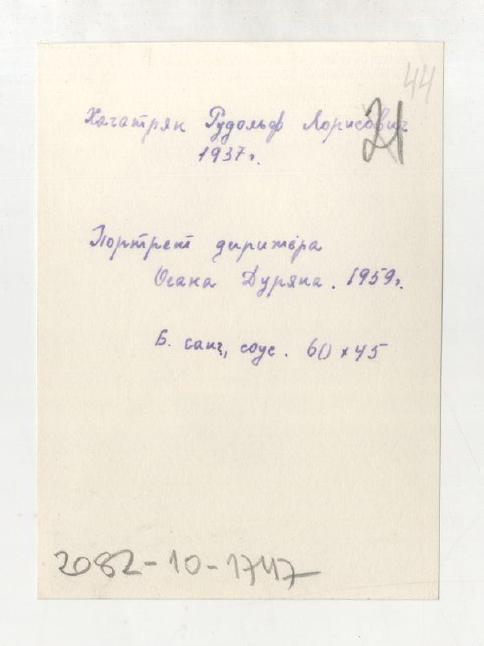 44
21
Хачатрян Рудольф Лорисович
1937г.
Портрет дирижёра
Огана Дуряна. 1959г.
Б. санг, соус. 60 х 45
2082-10-1747